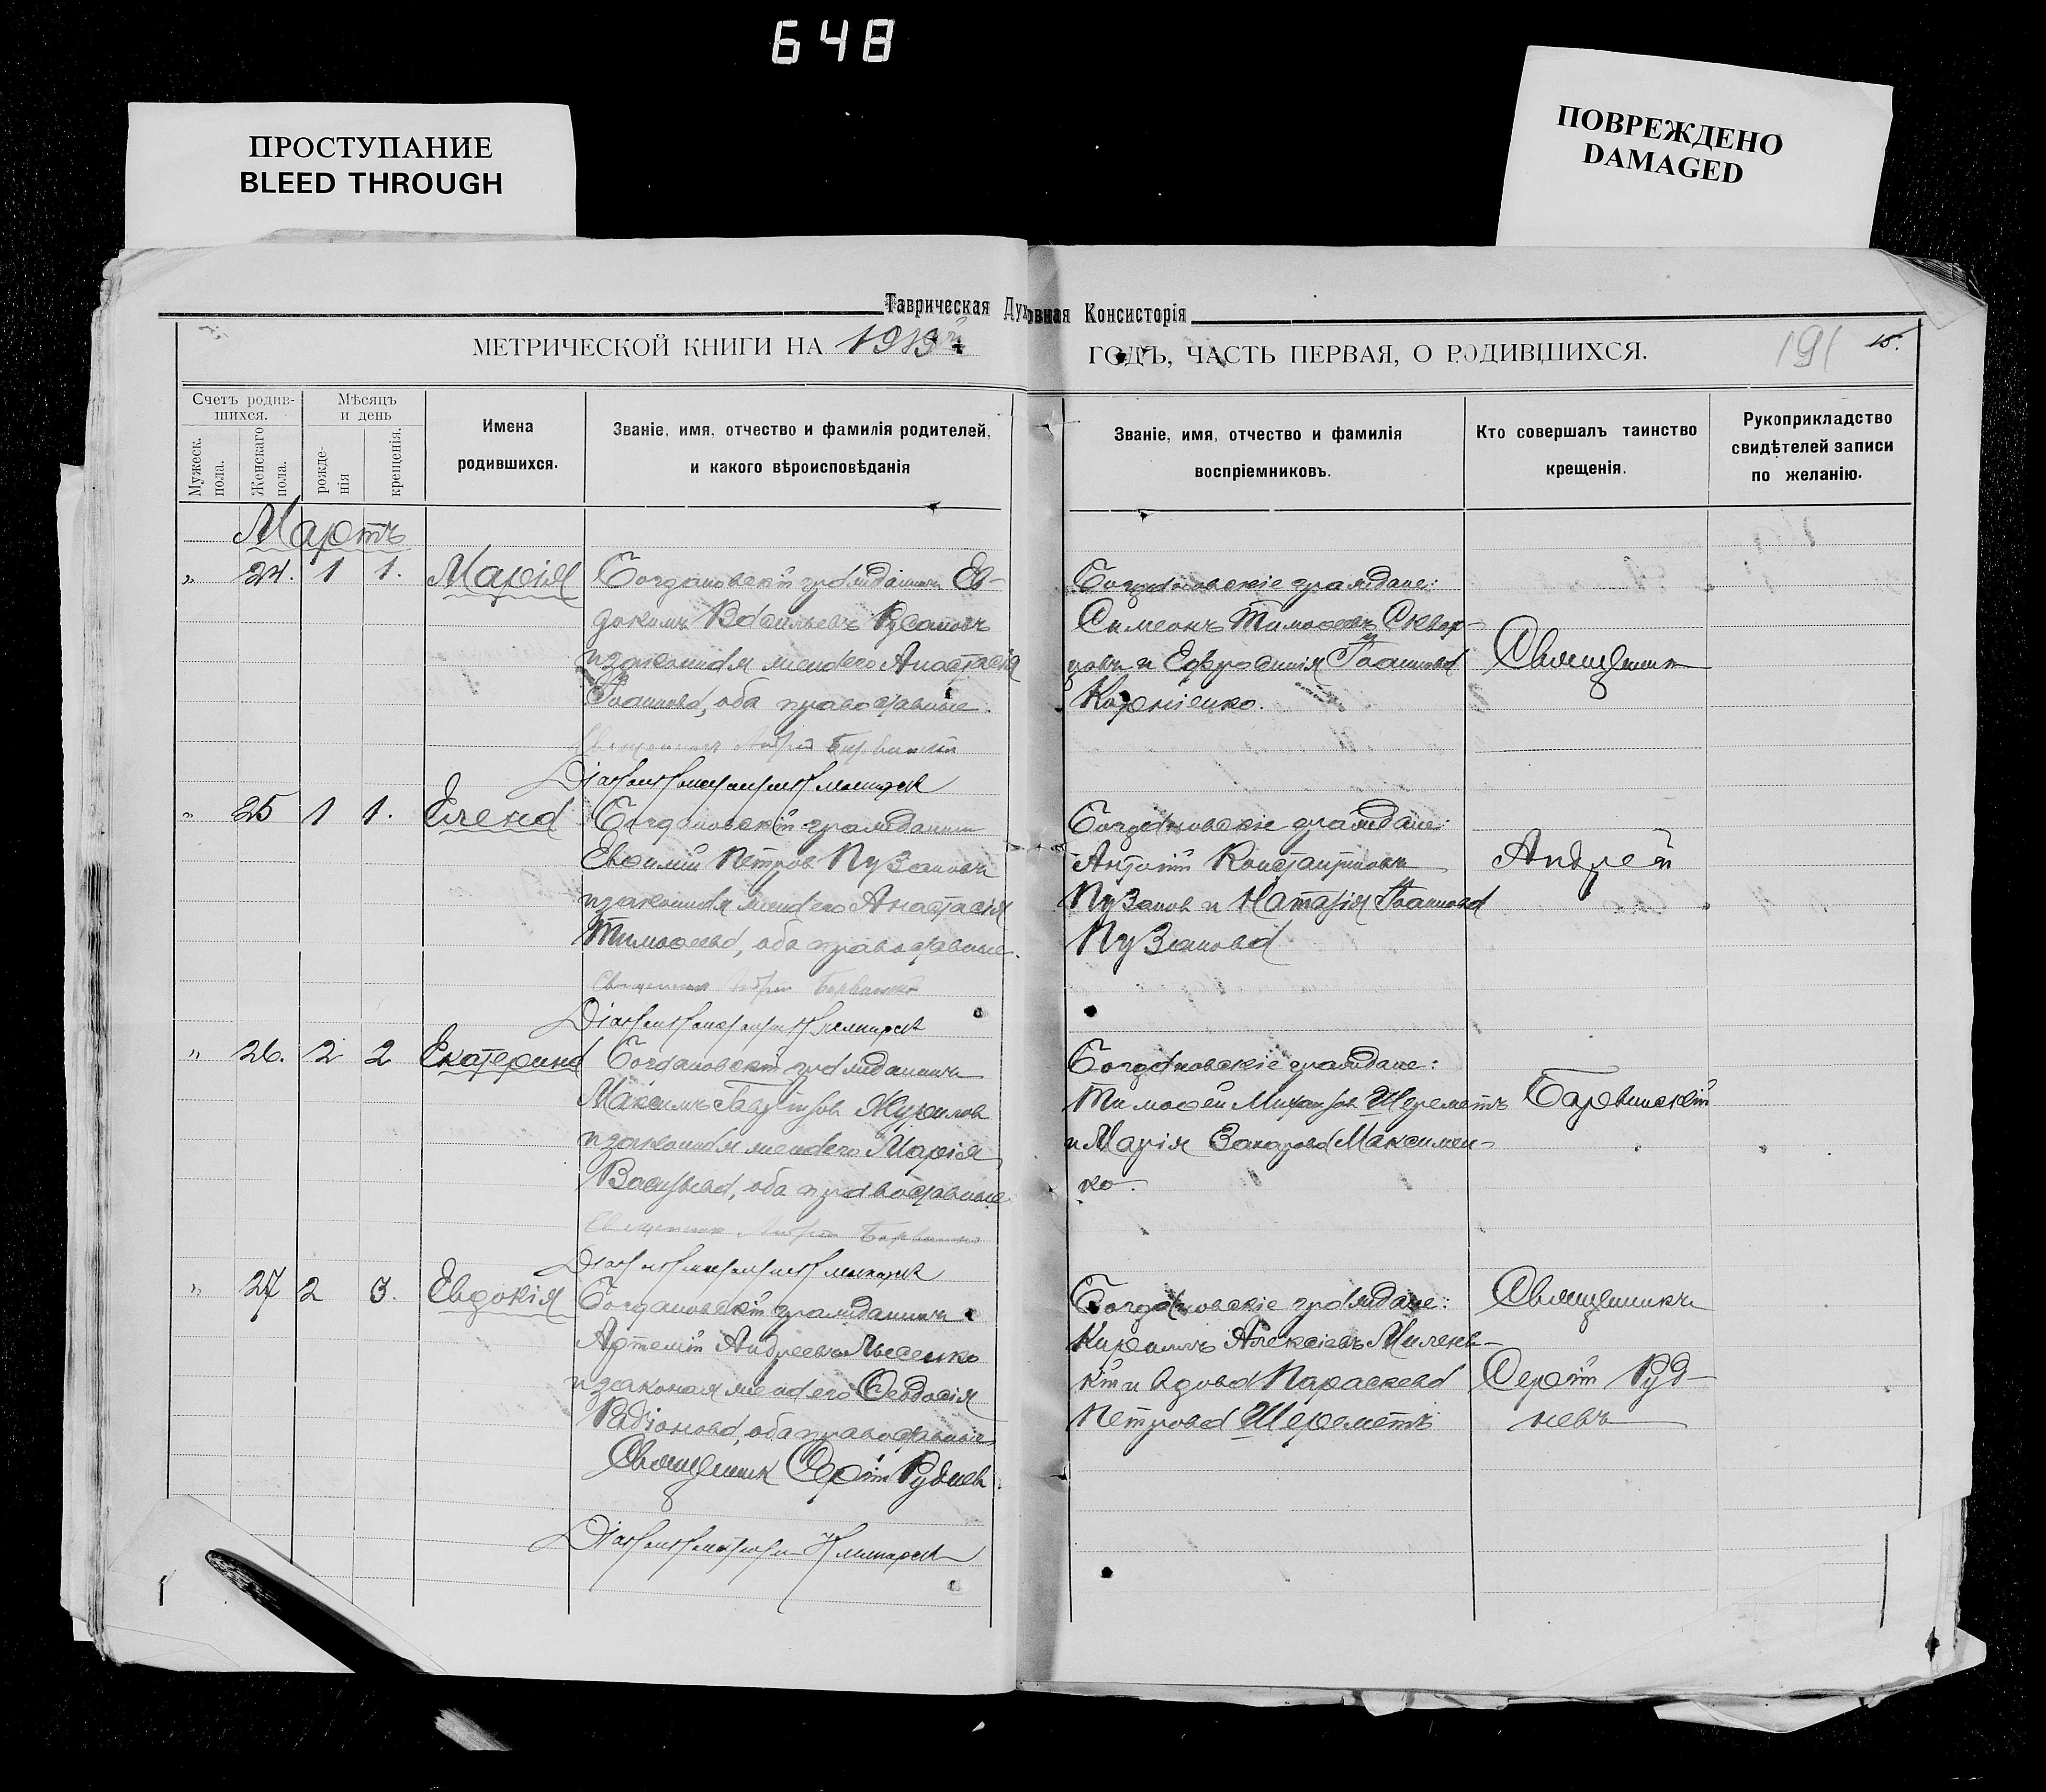 648
ПРОСТУПАНИЕ
BLEED THROUGH
ПОВРЕЖДЕНО
DAMAGED
Таврическая Духовная Консисторія
МЕТРИЧЕСКОЙ КНИГИ НА 1919й ГОДЪ, ЧАСТЬ ПЕРВАЯ, О РОДИВШИХСЯ.
191
15.
Счетъ родив-
шихся.
Мужеск.
пола.
Женскаго
пола.
Мѣсяцъ
и день
рожде-
нія
крещенія.
Имена
родившихся.
Званіе, имя, отчество и фамилія родителей,
и какого вѣроисповѣданія
Званіе, имя, отчество и фамилія
воспріемниковъ.
Кто совершалъ таинство
крещенія.
Рукоприкладство
свидѣтелей записи
по желанію.
Мартъ
„ 24. 1 1. Марія
Богдановскій гражданинъ Ев-
докимъ Васильевъ Русановъ
и законная жена его Анастасія
Іоаннова, оба православные.
Священникъ Андрей Барвинскій
Богдановскіе граждане:
Симеонъ Тимоѳеевъ Сквор-
цовъ и Ефросинія Іоаннова
Корніенко.
Священник
„ 25 1 1. Елена
Богдановскій гражданинъ
Евѳимій Петров Пузановъ
и законная жена его Анастасія
Тимоѳеева, оба православные.
Священник Андрей
Богдановскіе граждане:
Антоній Константиновъ
Пузанов и Наталія Іоаннова
Пузанова
Андрей
„ 26. 2 2 Екатерина
Богдановскій гражданинъ
Максимъ Гаврілов Журилов
и законная жена его Марія
Васильева, оба православные
Священник Андрей
Богдановскіе граждане:
Тимоѳей Михайлов Шереметъ
и Марія Захарова Максимен-
ко.
Барвинскій
„ 27 2 3. Евдокія
Богдановскій гражданинъ
Артемій Андреевъ Лысенко
и законная жена его Ѳеодосія
Радіонова, оба православные
Священник Сергій Руднев.
Богдановскіе граждане:
Кириллъ Алексіевъ Милень-
кій и вдова Параскева
Петрова Шереметъ
Священникъ
Сергій Руд-
невъ